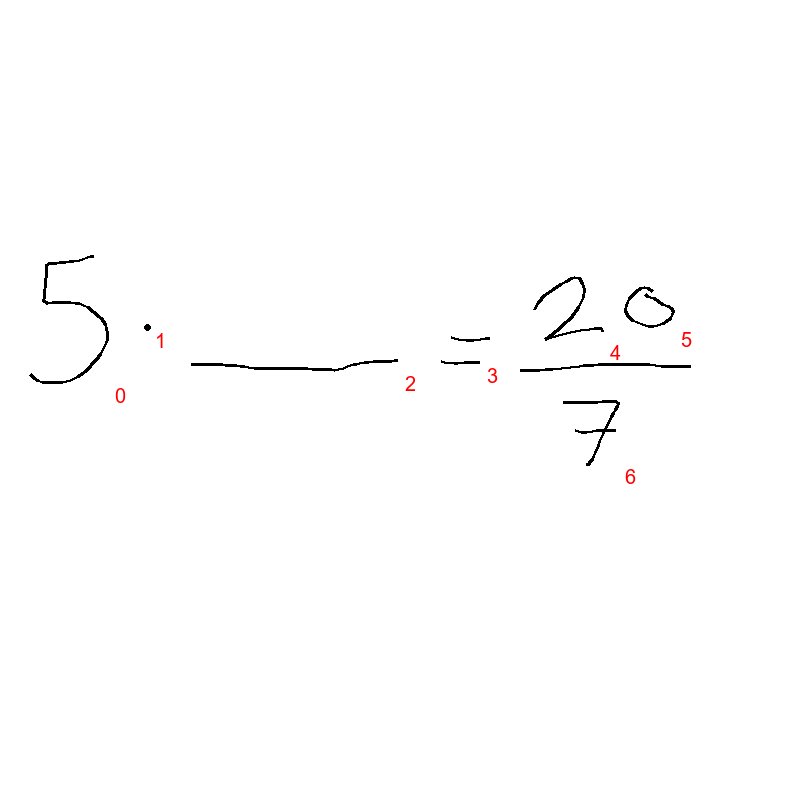 5 · ____ = 20/7
0 1 2 3 4 5 6